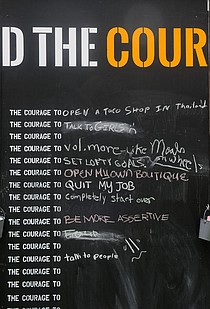 D THE COUR
THE COURAGE TO OPEN A TACO SHOP IN Thailand
THE COURAGE TO TALK TO GIRLS
THE COURAGE TO
THE COURAGE TO vol. more-like Meals
THE COURAGE TO SET LOFTY GOALS on wheels
THE COURAGE TO OPEN MY OWN BOUTIQUE
THE COURAGE TO QUIT MY JOB
THE COURAGE TO completely start over
THE COURAGE TO
THE COURAGE TO BE MORE ASSERTIVE
THE COURAGE TO
THE COURAGE TO
THE COURAGE TO talk to people
THE COURAGE TO
THE COURAGE TO
THE COURAGE TO
THE COURAGE TO